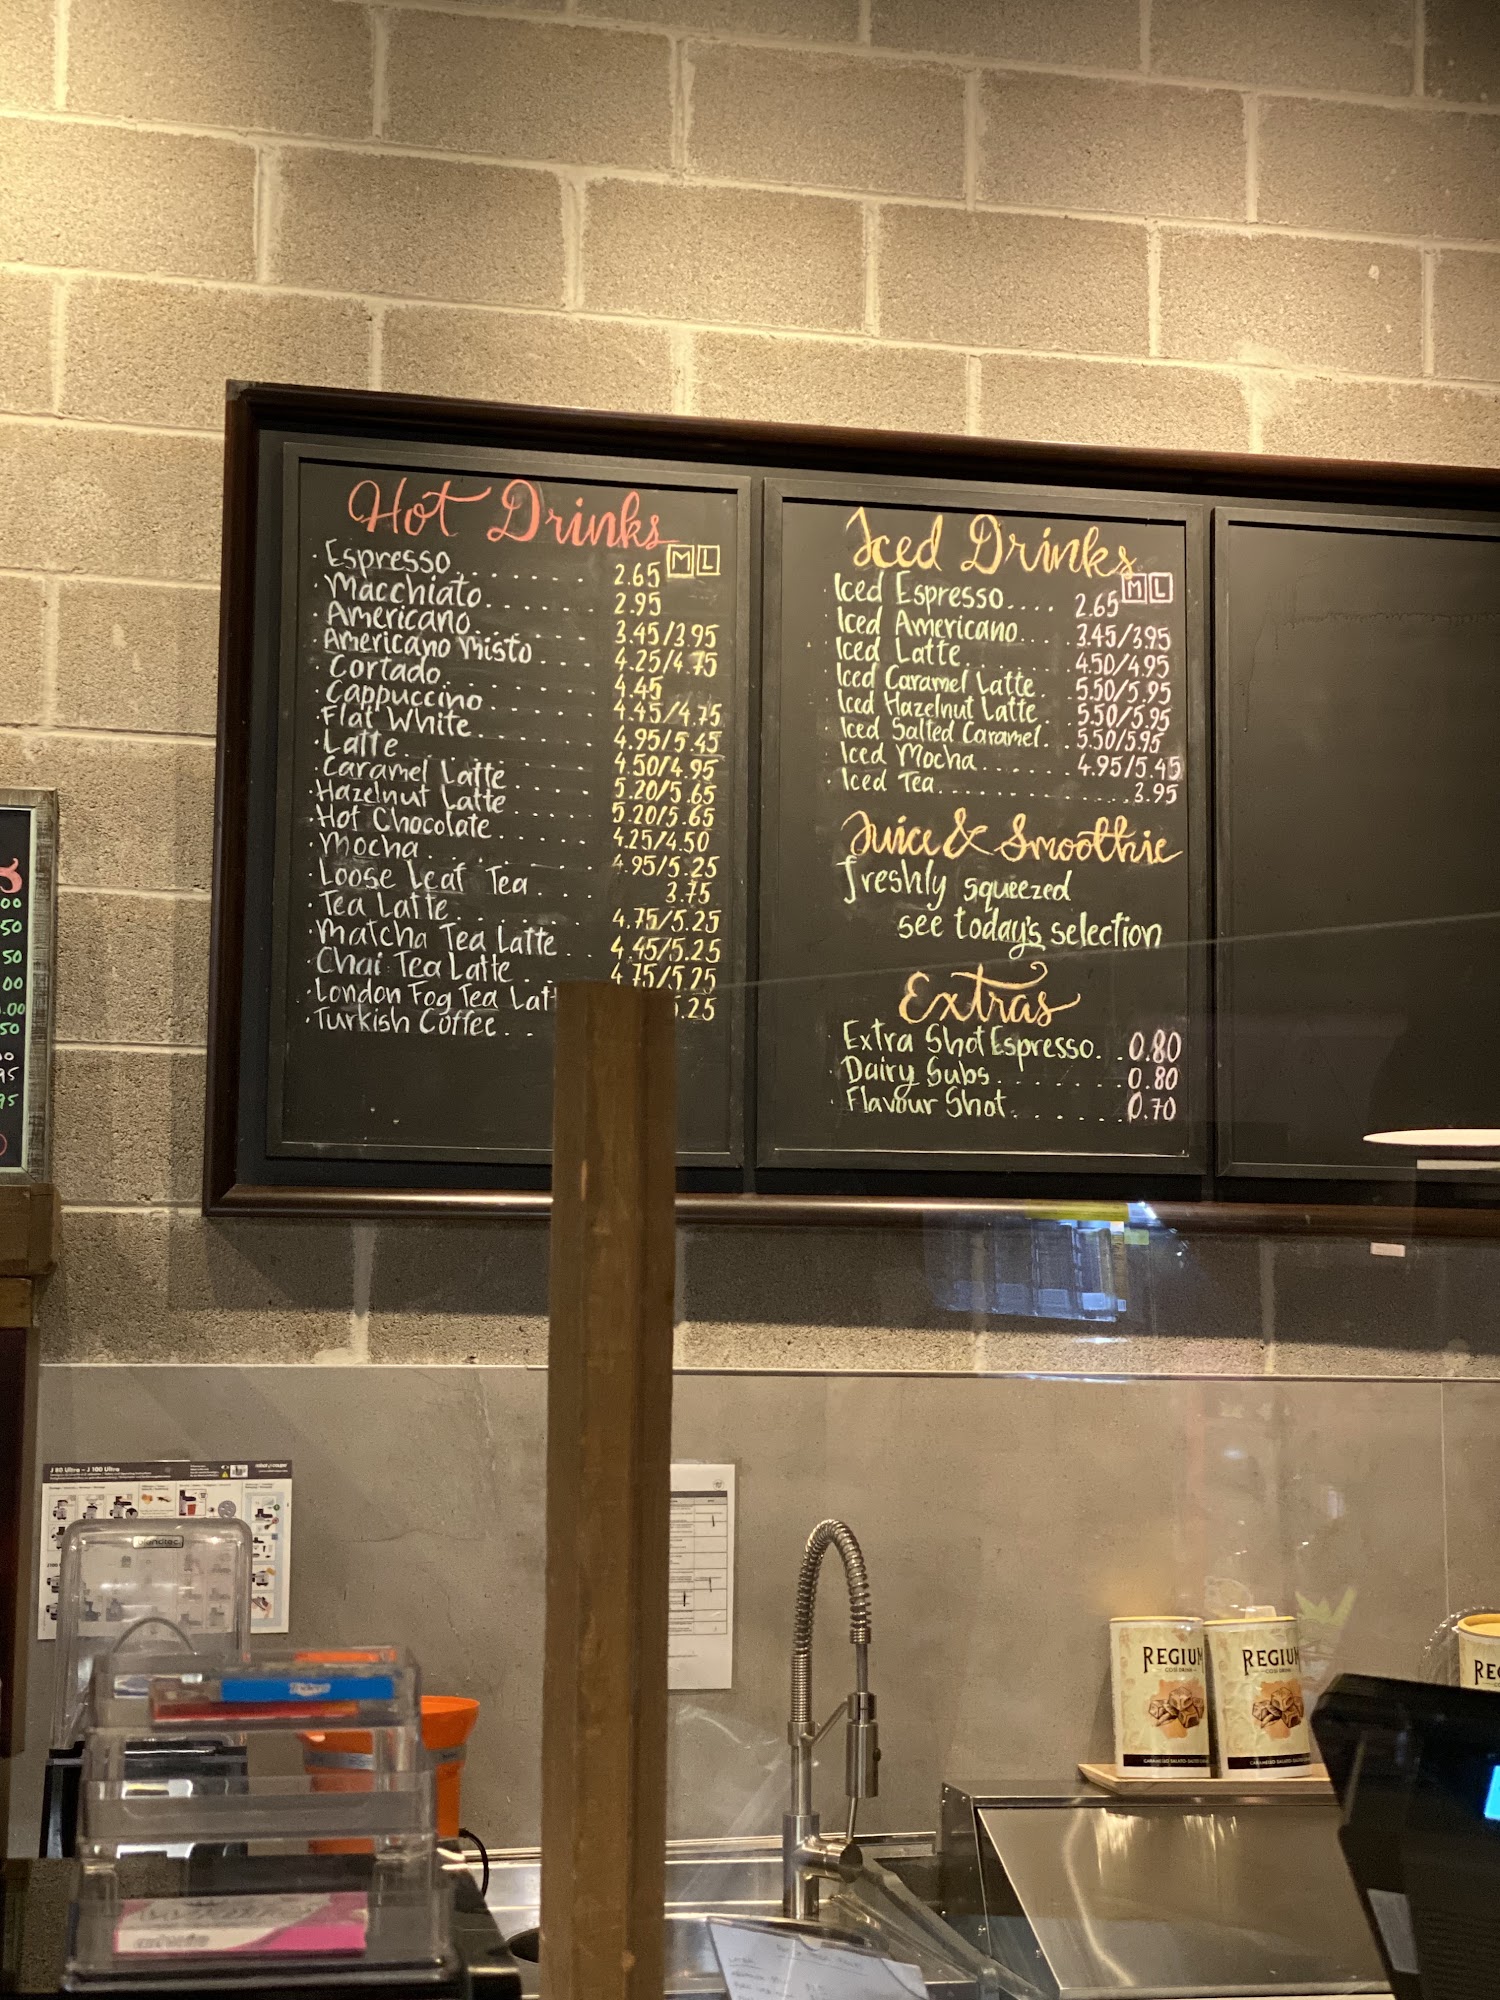 Hot Drinks
M L
· Espresso........ 2.65
· Macchiato........ 2.95
· Americano........ 3.45/3.95
· Americano Misto... 4.25/4.75
· Cortado........ 4.45
· Cappuccino...... 4.45/4.75
· Flat White....... 4.95/5.45
· Latte.......... 4.50/4.95
· Caramel Latte.... 5.20/5.65
· Hazelnut Latte.... 5.20/5.65
· Hot Chocolate..... 4.25/4.50
· Mocha......... 4.95/5.25
· Loose Leaf Tea.... 3.75
· Tea Latte....... 4.75/5.25
· Matcha Tea Latte.. 4.45/5.25
· Chai Tea Latte.. 4.75/5.25
· London Fog Tea Latt 5.25
· Turkish Coffee...
Iced Drinks
M L
· Iced Espresso.... 2.65
· Iced Americano... 3.45/3.95
· Iced Latte....... 4.50/4.95
· Iced Caramel Latte. 5.50/5.95
· Iced Hazelnut Latte. 5.50/5.95
· Iced Salted Caramel. 5.50/5.95
· Iced Mocha...... 4.95/5.45
· Iced Tea............. 3.95
Juice & Smoothie
freshly squeezed
see today's selection
Extras
Extra Shot Espresso. . 0.80
Dairy Subs....... 0.80
· Flavour Shot...... 0.70
J 80 Ultra – J 100 Ultra
robot coupe
blendtec
Trident
REGIUM
REGIUM
REG